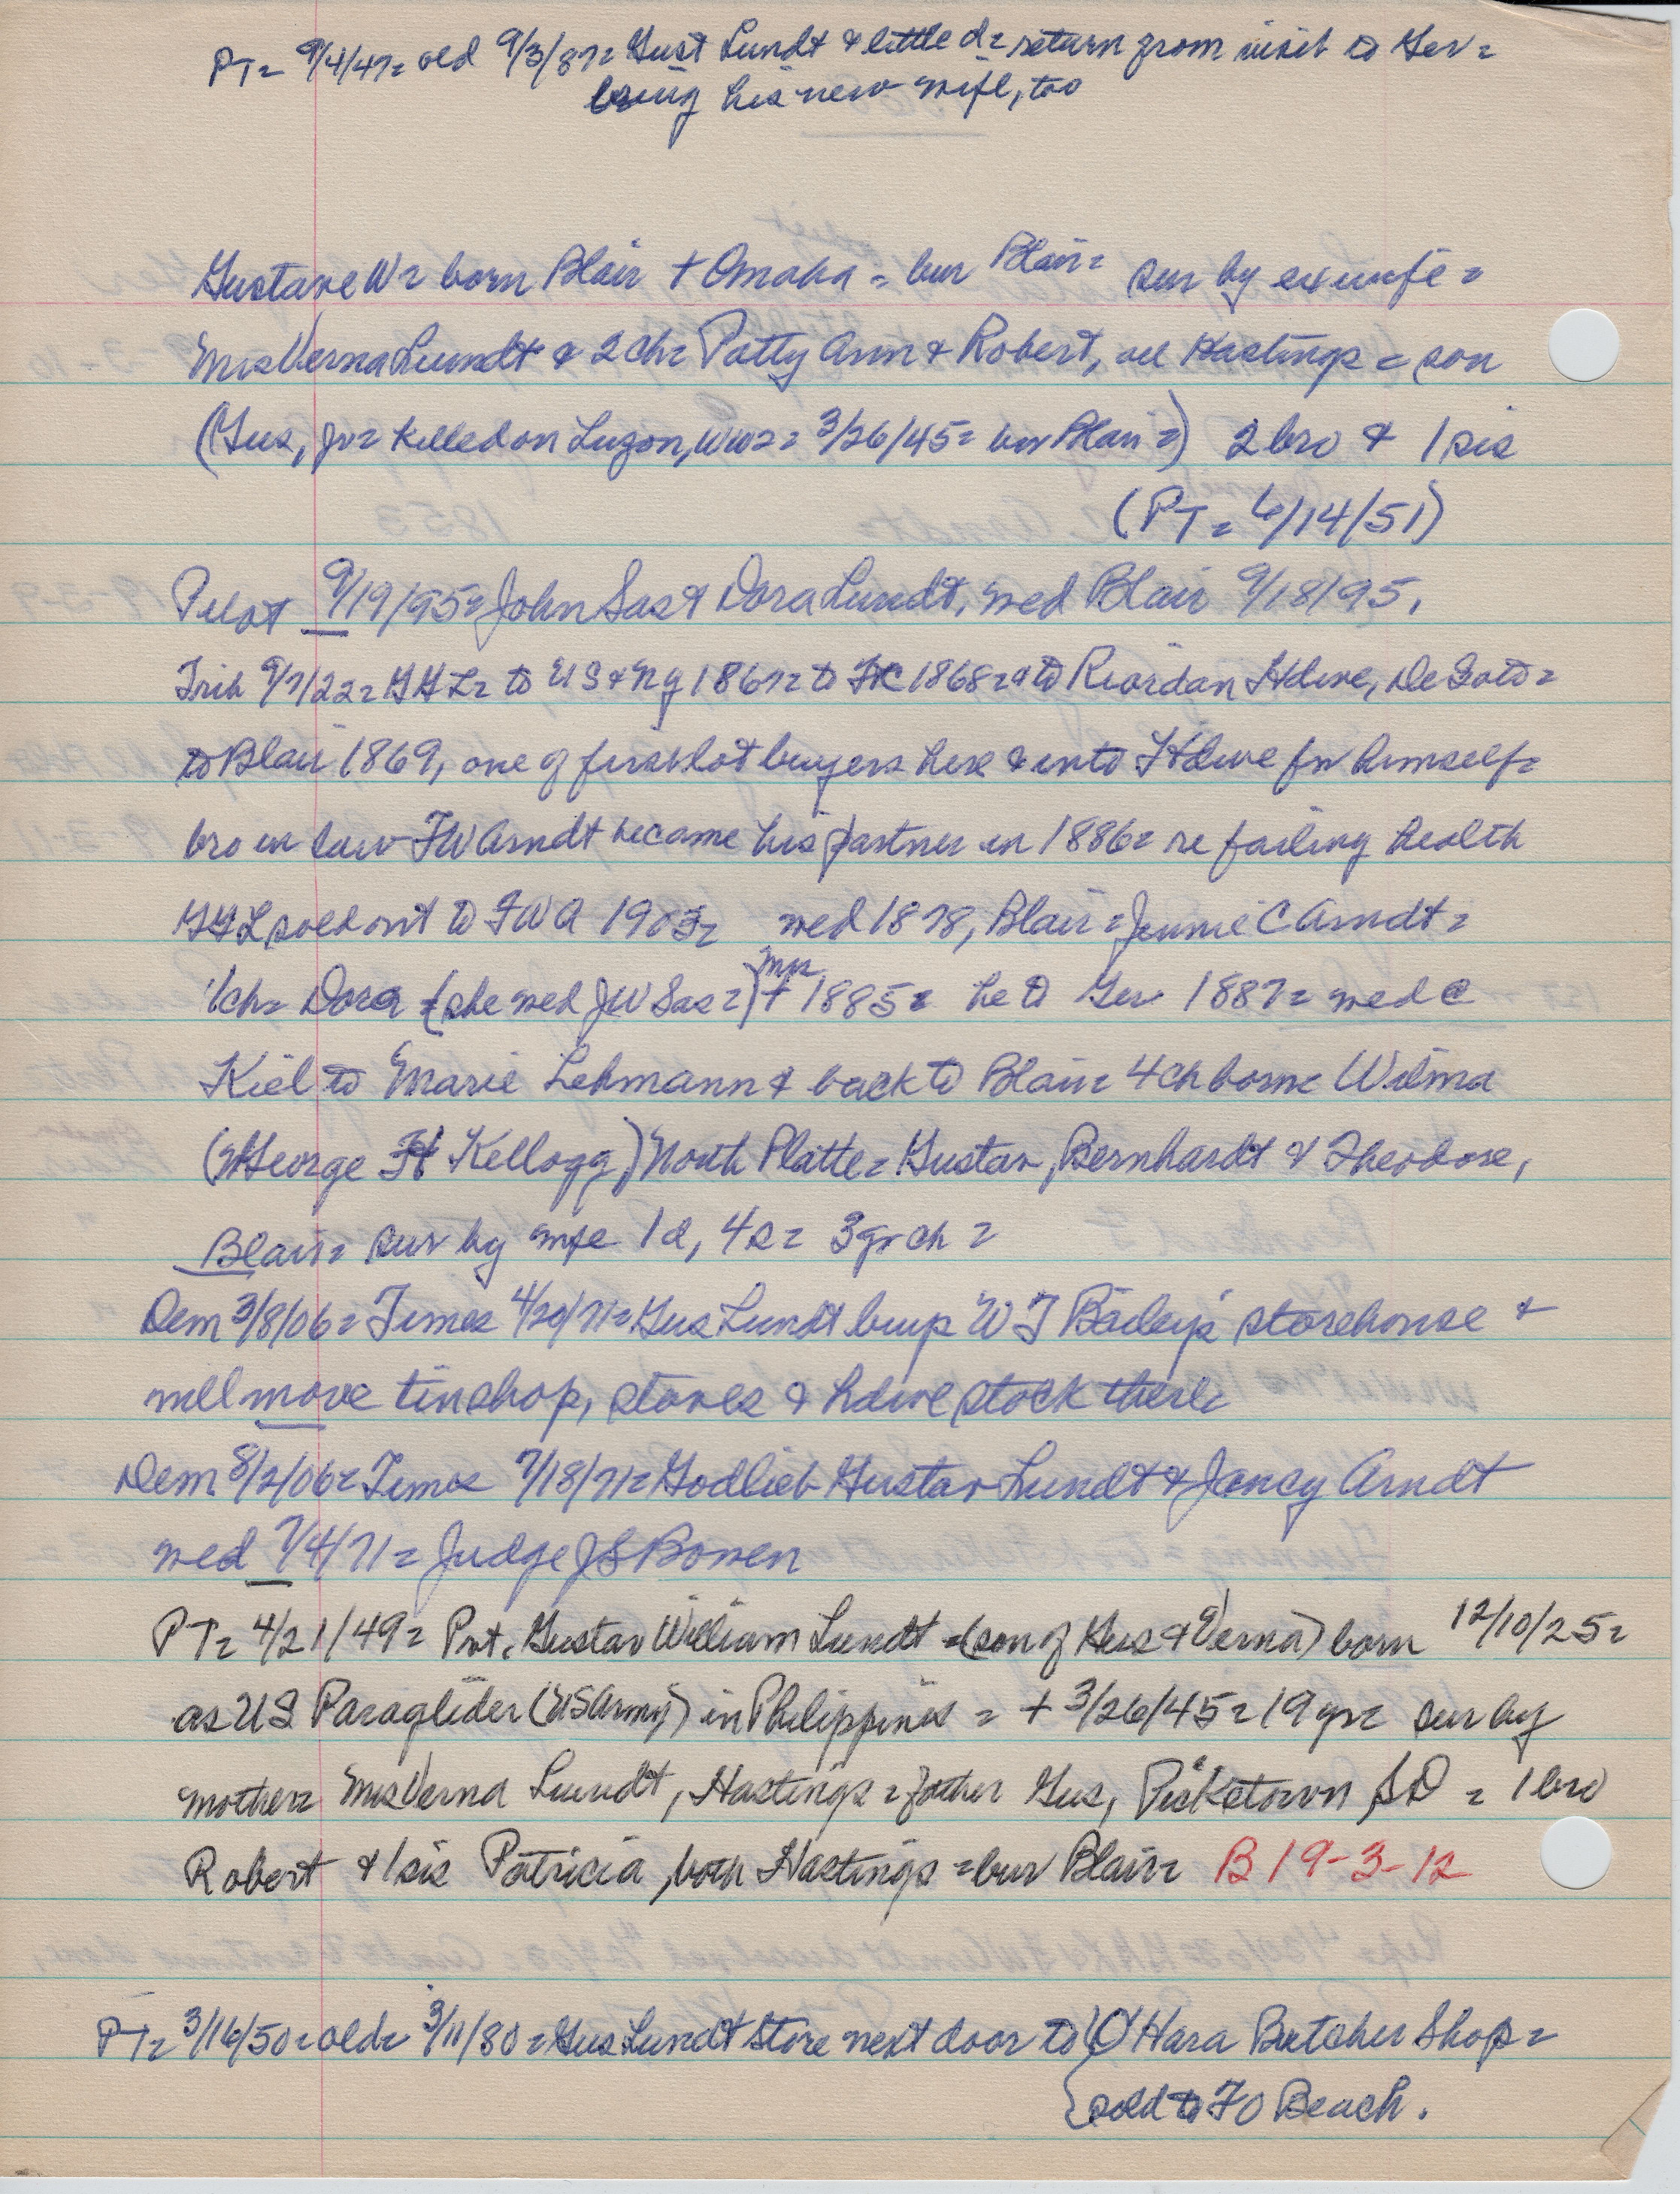 PT= 9/4/47= old 9/3/87= Gust Lundt & little d= return from visit to Ger=
bring his new wife, too
Gustave W= born Blair + Omaha = bur Blair= sur by exwife=
Mrs Verna Lundt & 2 ch= Patty Ann & Robert, all Hastings = son
(Gus, Jr= killed on Luzon, WW2= 3/26/45= bur Blair=) 2 bro & 1 sis
(PT= 6/14/51)
Pilot 9/19/95= John Sas & Dora Lundt, wed Blair 9/18/95.
Trib 9/7/22= GGL= to US & NY 1867= to FtC 1868= to Riordan Hdwe, DeSoto=
to Blair 1869, one of first lot buyers here & into Hdwe for himself=
bro in law FW Arndt became his partner in 1886= re failing health
GGL sold out to FWA 1903= wed 1878, Blair= Jennie C Arndt=
1 ch= Dora = (she wed JW Sas=) Mrs + 1885= he to Ger 1887= wed @
Kiel to Marie Lehmann & back to Blair= 4 ch born= Wilma
(George H Kellogg) North Platte= Gustav, Bernhardt & Theodore,
Blair= sur by wife 1 d, 4 s= 3 gr ch =
Dem 3/8/06= Times 4/20/71= Gus Lundt buys W J Bailey's storehouse &
will move tinshop, stoves & hdwe stock there
Dem 8/2/06= Times 7/18/71= Godlieb Gustav Lundt & Jancy Arndt
wed 7/4/71= Judge JS Bowen
PT= 4/21/49= Pvt. Gustav William Lundt =(son of Gus & Verna) born 12/10/25=
as US Paraglider (US Army) in Philippines = + 3/26/45= 19 yr= sur by
mother= Mrs Verna Lundt, Hastings = father Gus, Pickstown SD = 1 bro
Robert & 1 sis Patricia, both Hastings = bur Blair= B 19-3-12
PT= 3/16/50= old= 3/11/80= Gus Lundt store next door to O'Hara Butcher Shop=
sold to FO Beach.